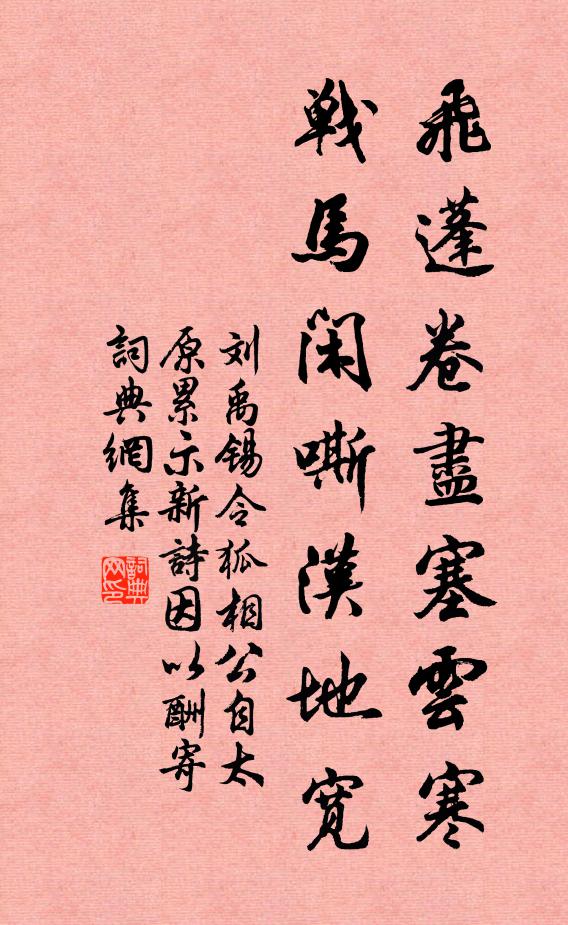 飛蓬卷盡塞雲寒
戰馬閑嘶漢地寬
刘禹锡令狐相公自太
原累示新詩因以酬寄
詞典網集
詞典
网印